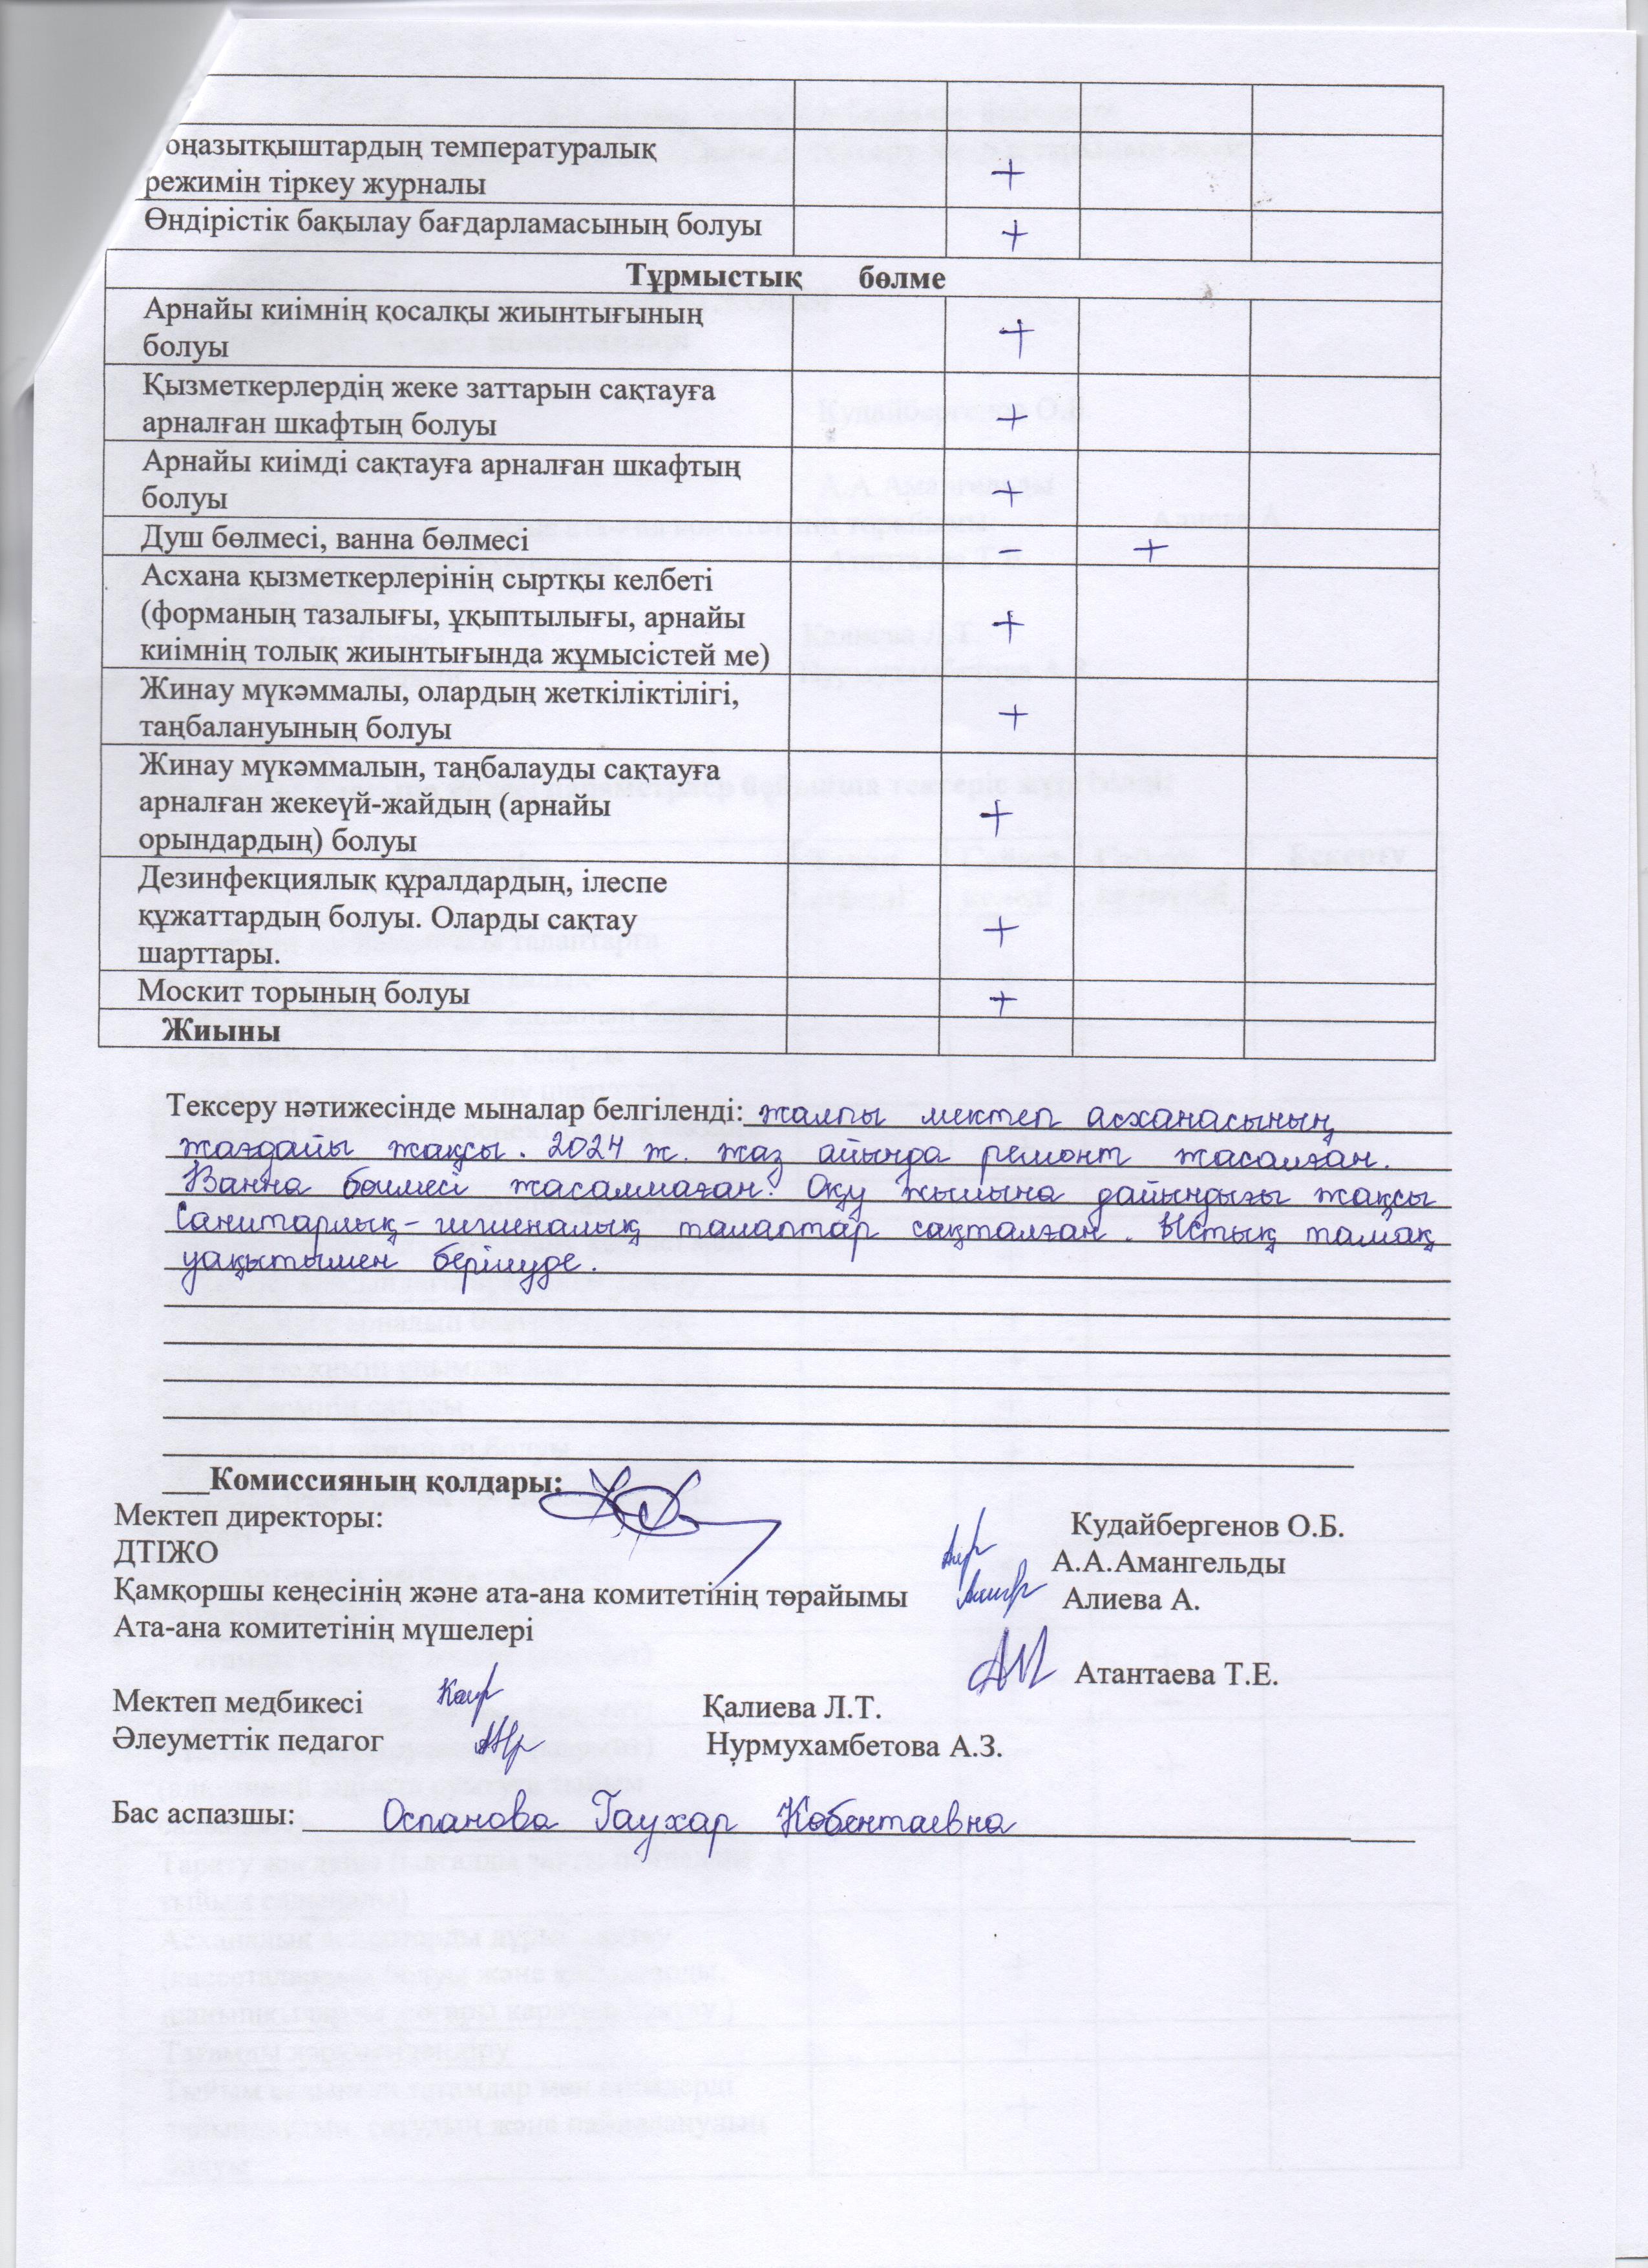 оңазытқыштардың температуралық
режимін тіркеу журналы +
Өндірістік бақылау бағдарламасының болуы +
Тұрмыстық бөлме
Арнайы киімнің қосалқы жиынтығының
болуы +
Қызметкерлердің жеке заттарын сақтауға
арналған шкафтың болуы +
Арнайы киімді сақтауға арналған шкафтың
болуы +
Душ бөлмесі, ванна бөлмесі - +
Асхана қызметкерлерінің сыртқы келбеті
(форманың тазалығы, ұқыптылығы, арнайы +
киімнің толық жиынтығында жұмысістей ме)
Жинау мүкәммалы, олардың жеткіліктілігі,
таңбалануының болуы +
Жинау мүкәммалын, таңбалауды сақтауға
арналған жекеүй-жайдың (арнайы +
орындардың) болуы
Дезинфекциялық құралдардың, ілеспе
құжаттардың болуы. Оларды сақтау +
шарттары.
Москит торының болуы +
Жиыны
Тексеру нәтижесінде мыналар белгіленді: жалпы мектеп асханасының
жағдайы жақсы. 2024 ж. жаз айында ремонт жасалған.
Ванна бөлмесі жасалмаған. Оқу жылына дайындығы жақсы
Санитарлық-гигиеналық талаптар сақталған. Ыстық тамақ
уақытымен берілуде.
Комиссияның қолдары:
Мектеп директоры: Кудайбергенов О.Б.
ДТІЖО А.А.Амангельды
Қамқоршы кеңесінің және ата-ана комитетінің төрайымы Алиева А.
Ата-ана комитетінің мүшелері
Атантаева Т.Е.
Мектеп медбикесі Қалиева Л.Т.
Әлеуметтік педагог Нурмухамбетова А.З.
Бас аспазшы: Оспанова Гаухар Кобентаевна